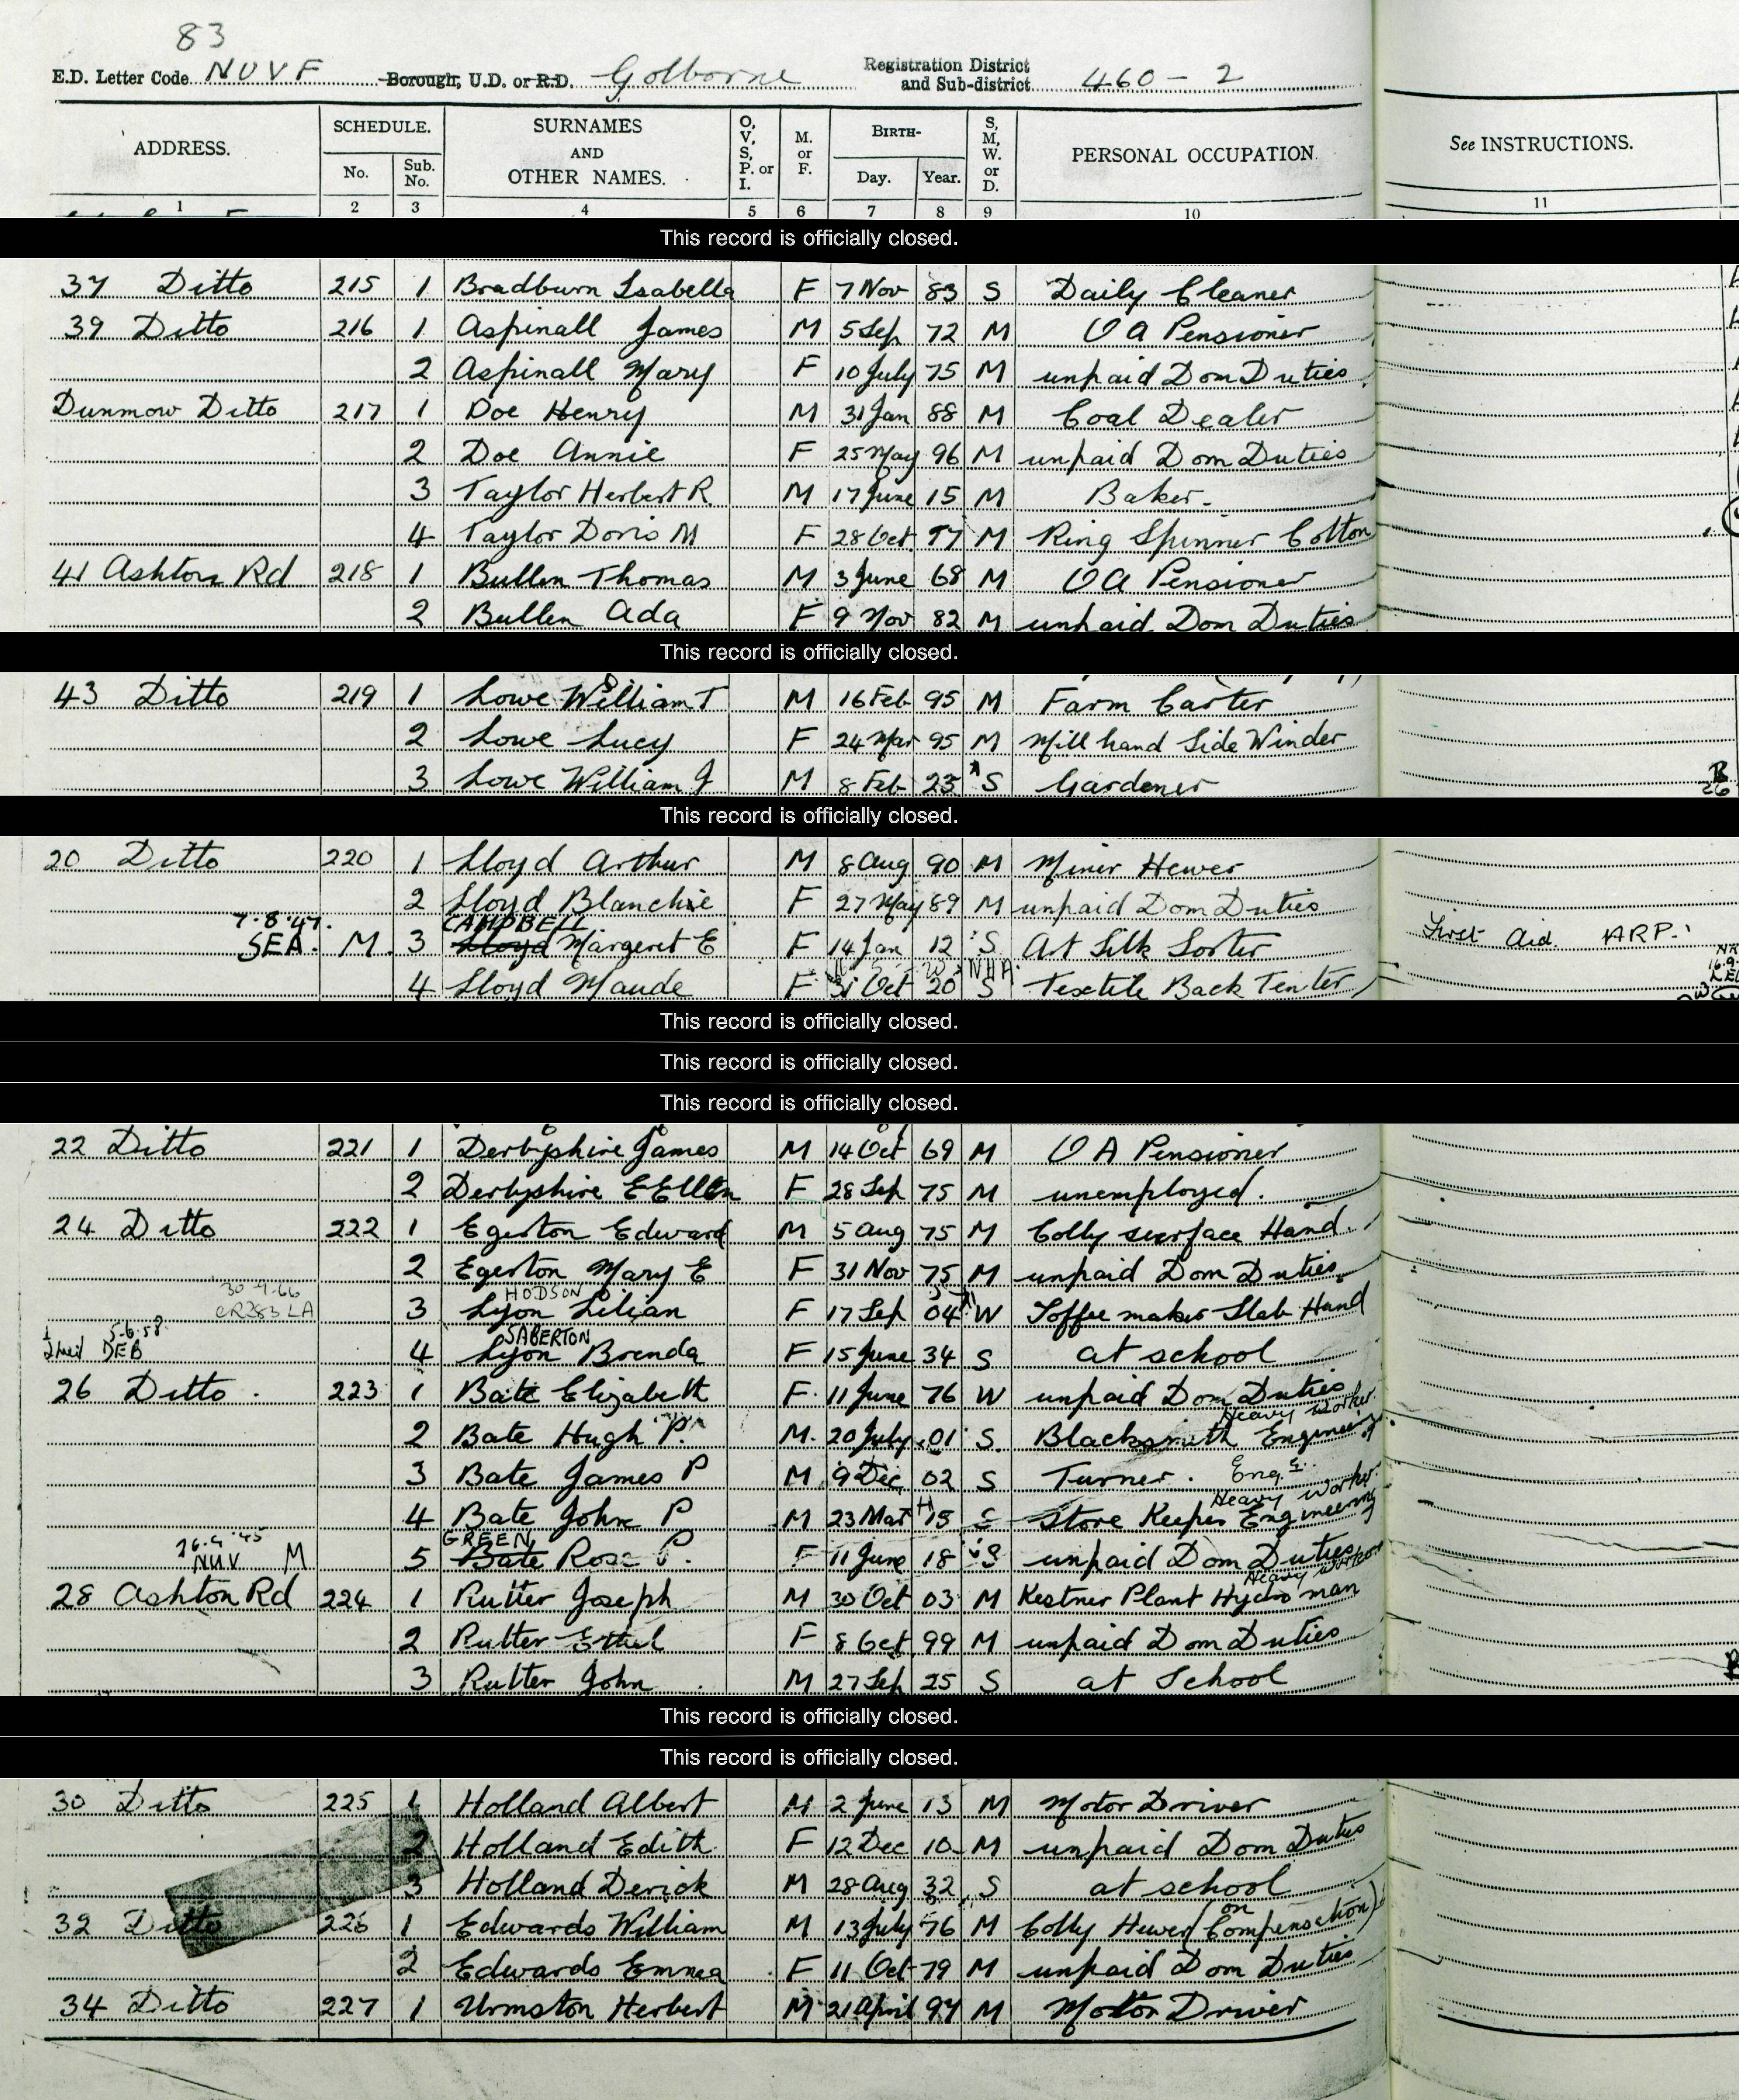 83
E.D. Letter Code NUVF Borough, U.D. or R.D. Golborne Registration District and Sub-district 460-2
ADDRESS. SCHEDULE. No. Sub. No. SURNAMES AND OTHER NAMES. O, V, S, P. or I. M. or F. BIRTH- Day. Year. S, M, W. or D. PERSONAL OCCUPATION. See INSTRUCTIONS.
1 2 3 4 5 6 7 8 9 10 11
This record is officially closed.
37 Ditto 215 1 Bradburn Isabella F 7 Nov 83 S Daily Cleaner
39 Ditto 216 1 Aspinall James M 5 Sep 72 M O A Pensioner
2 Aspinall Mary F 10 July 75 M unpaid Dom Duties
Dunmow Ditto 217 1 Doe Henry M 31 Jan 88 M Coal Dealer
2 Doe Annie F 25 May 96 M unpaid Dom Duties
3 Taylor Herbert R. M 17 June 15 M Baker
4 Taylor Doris M F 28 Oct 17 M Ring Spinner Cotton
41 Ashton Rd 218 1 Bullen Thomas M 3 June 68 M O A Pensioner
2 Bullen Ada F 9 Nov 82 M unpaid Dom Duties
This record is officially closed.
43 Ditto 219 1 Lowe William T M 16 Feb 95 M Farm Carter
2 Lowe Lucy F 24 Mar 95 M Mill hand Side Winder
3 Lowe William J M 8 Feb 23 S Gardener
This record is officially closed.
20 Ditto 220 1 Lloyd Arthur M 8 Aug 90 M Miner Hewer
2 Lloyd Blanchie F 27 May 89 M unpaid Dom Duties
7.8.47. CAMPBELL
SEA. M. 3 Lloyd Margeret E F 14 Jan 12 S Art Silk Sorter First Aid ARP.
NHA.
4 Lloyd Maude F 31 Oct 20 S Textile Back Tenter
This record is officially closed.
This record is officially closed.
This record is officially closed.
22 Ditto 221 1 Derbyshire James M 14 Oct 69 M O A Pensioner
2 Derbyshire E Ellen F 28 Sep 75 M unemployed.
24 Ditto 222 1 Egerton Edward M 5 Aug 75 M Colly surface Hand.
2 Egerton Mary E F 31 Nov 75 M unpaid Dom Duties
30-9-66 HODSON
CR283 LA 3 Lyon Lilian F 17 Sep 04 W Toffee maker Slab Hand
5.6.58. SABERTON
DEB 4 Lyon Brenda F 15 June 34 S at school
26 Ditto 223 1 Bate Elizabeth F 11 June 76 W unpaid Dom Duties
Heavy Worker
2 Bate Hugh P. M 20 July 01 S Blacksmith Engineering
3 Bate James P M 9 Dec 02 S Turner. Eng.
Heavy Worker
4 Bate John P M 23 Mar 15 S Store Keeper Engineering
26.4.45 GREEN
NUV M 5 Bate Rose P. F 11 June 18 S unpaid Dom Duties
Heavy Worker
28 Ashton Rd 224 1 Rutter Joseph M 30 Oct 03 M Kestner Plant Hydro man
2 Rutter Ethel F 8 Oct 99 M unpaid Dom Duties
3 Rutter John M 27 Sep 25 S at School
This record is officially closed.
This record is officially closed.
30 Ditto 225 1 Holland Albert M 2 June 13 M Motor Driver
2 Holland Edith F 12 Dec 10 M unpaid Dom Duties
3 Holland Derick M 28 Aug 32 S at school
32 Ditto 226 1 Edwards William M 13 July 76 M Colly Hewer (on Compensation)
2 Edwards Emma F 11 Oct 79 M unpaid Dom Duties
34 Ditto 227 1 Urmston Herbert M 21 April 97 M Motor Driver